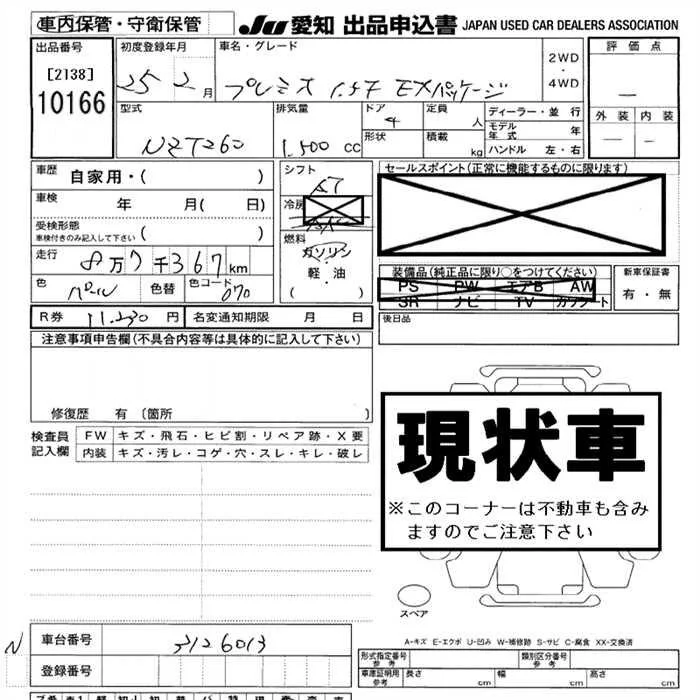 車内保管・守衛保管
JU 愛知 出品申込書 JAPAN USED CAR DEALERS ASSOCIATION
出品番号
[2138]
10166
初度登録年月
25 2 月
車名・グレード
プレミオ 1.5F EXパッケージ
2WD
・
4WD
評価点
—
外装 内装
— —
型式
NZT260
排気量
1,500 CC
ドア
4
形状
定員
人
積載
kg
ディーラー・並行
モデル年式 年
ハンドル 左・右
車歴 自家用・( )
車検 年 月( 日)
受検形態
車検付きのみ記入して下さい ( )
走行 8万7千367km
色 パール 色替 色コード 070
R券 11,230 円 名変通知期限 月 日
シフト
AT
冷房
燃料
ガソリン
軽・油
( )
セールスポイント(正常に機能するものに限ります)
装備品(純正品に限り○をつけてください)
PS PW エアB AW
SR ナビ TV カワシート
新車保証書
有・無
後日品
注意事項申告欄(不具合内容等は具体的に記入して下さい)
修復歴 有 〔箇所 〕
検査員記入欄
FW キズ・飛石・ヒビ割・リペア跡・X要
内装 キズ・汚レ・コゲ・穴・スレ・キレ・破レ
現状車
※このコーナーは不動車も含み
ますのでご注意下さい
スペア
A-キズ E-エクボ U-凹み W-補修跡 S-サビ C-腐食 XX-交換済
N
車台番号 3126013
登録番号
形式指定番号
参考
類別区分番号
参考
車庫証明用
参考
長さ cm 幅 cm 高さ cm